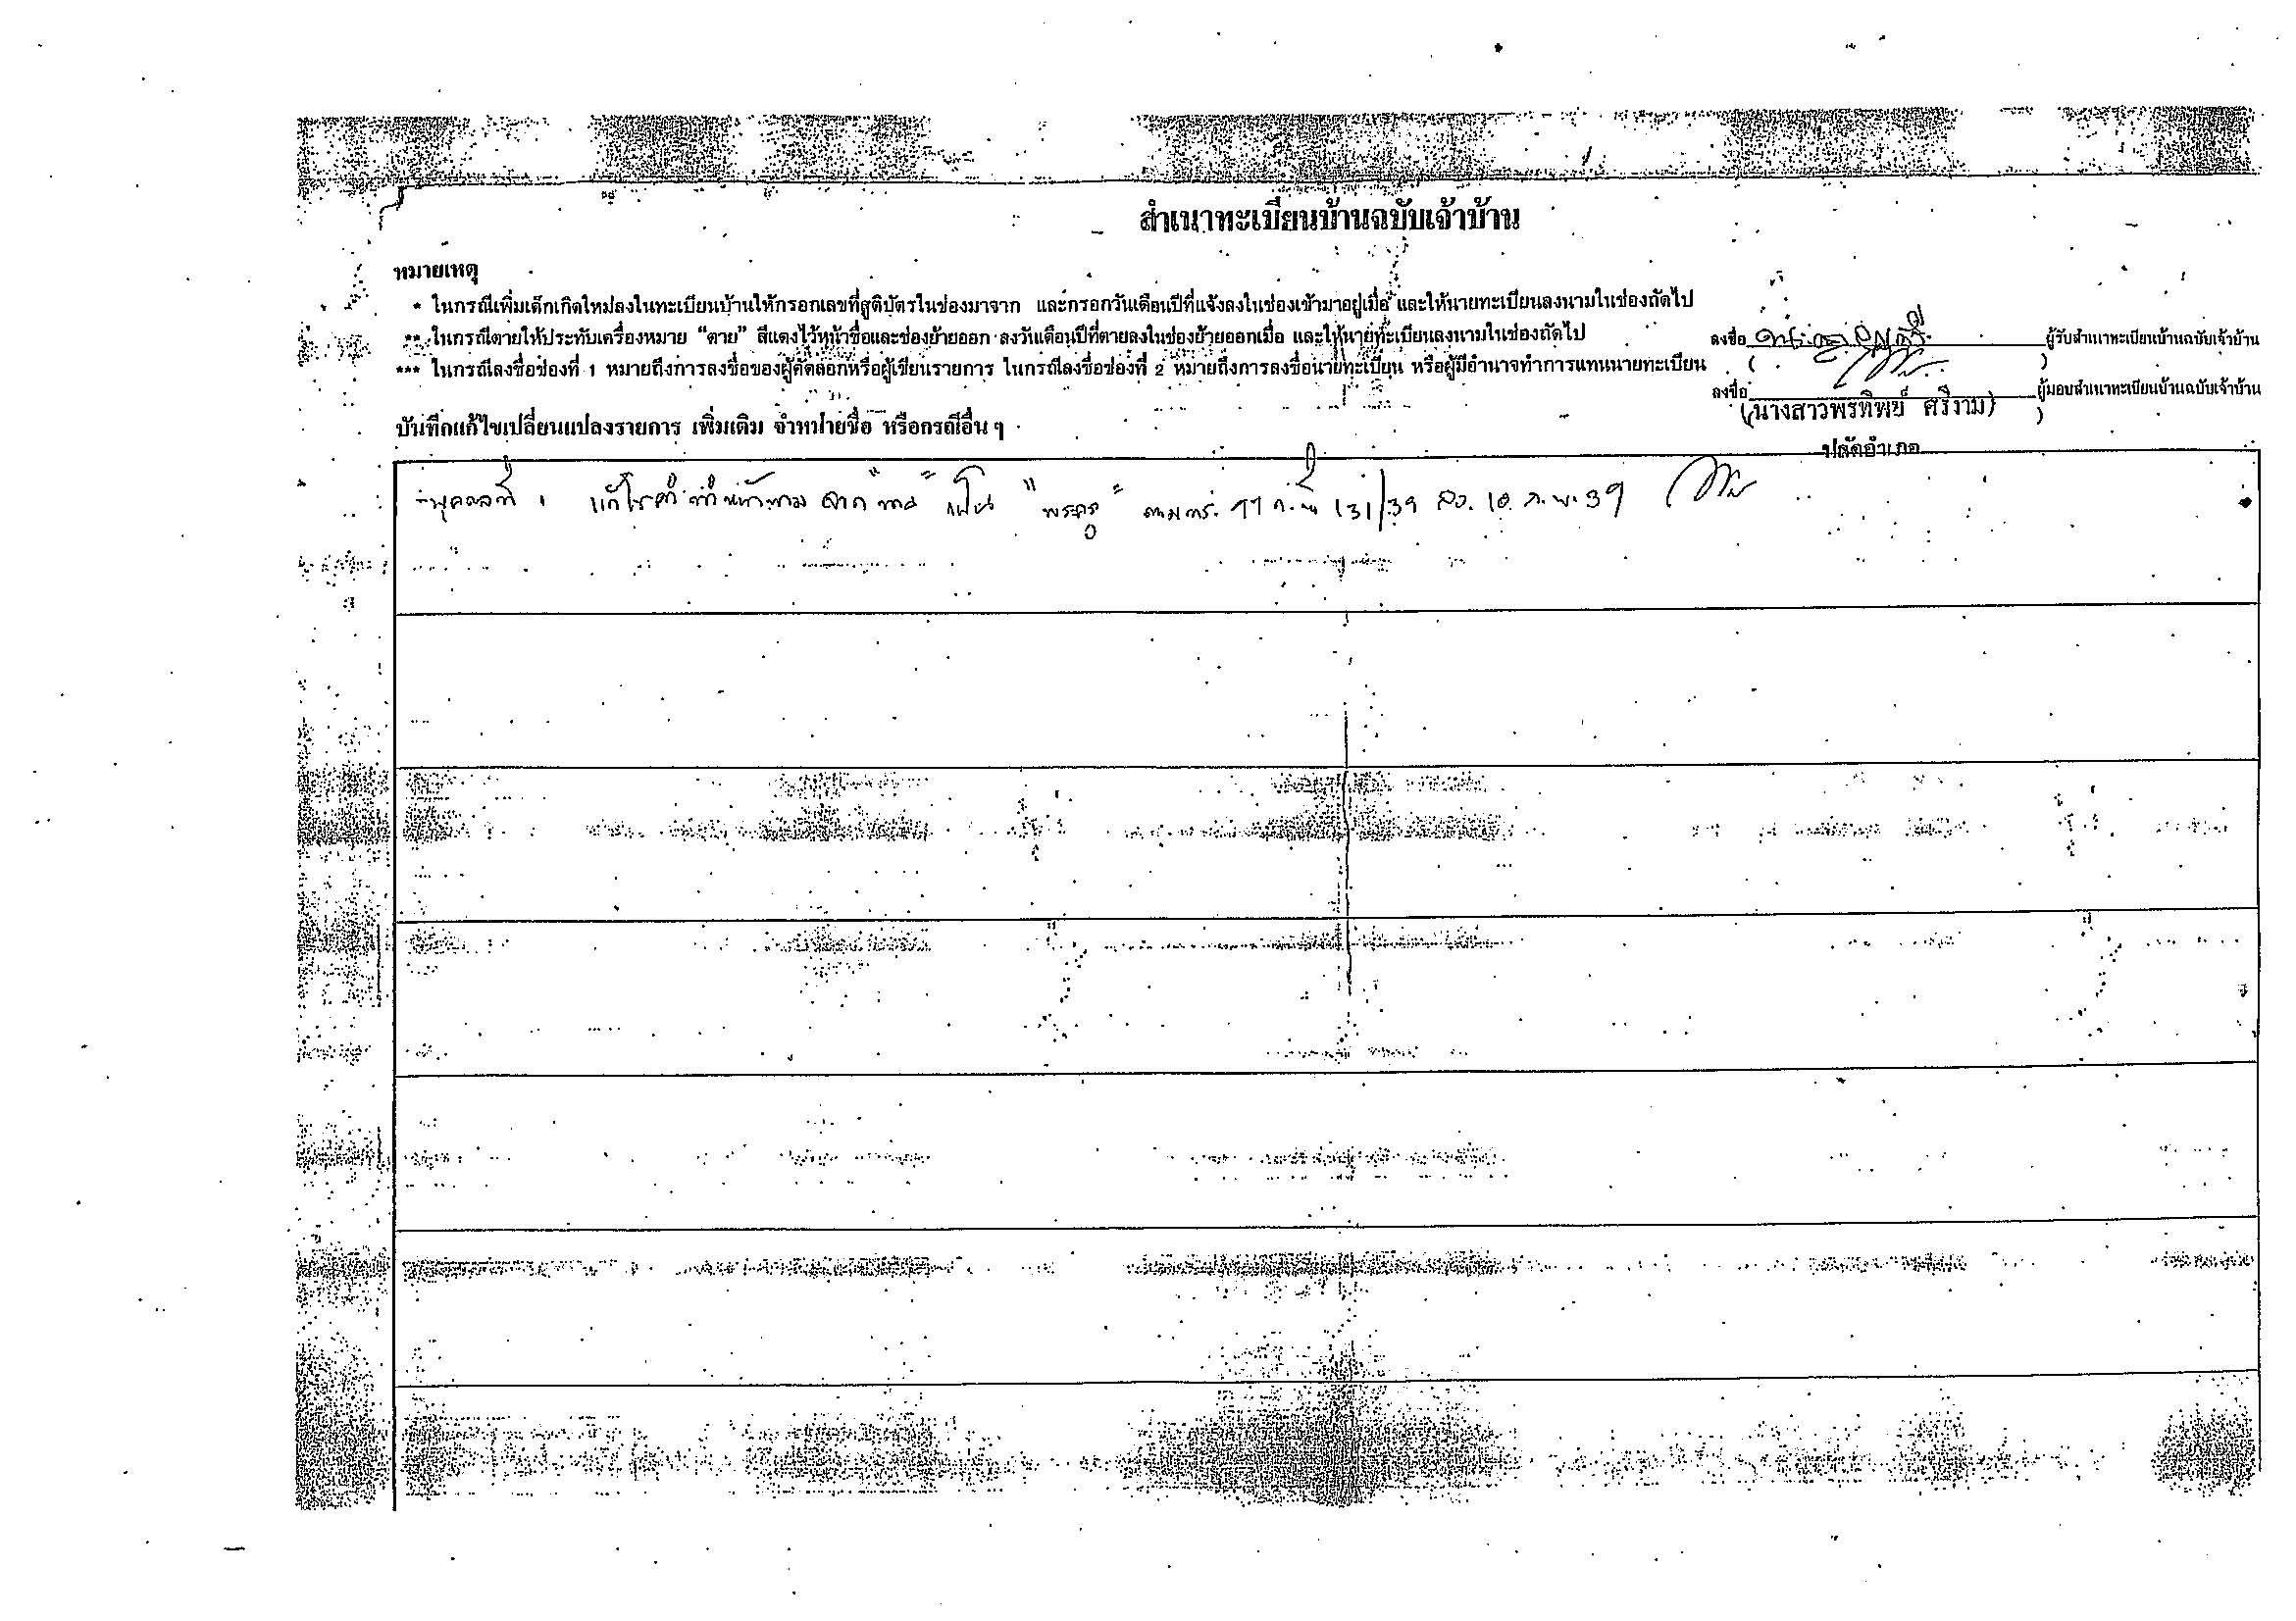 สำเนาทะเบียนบ้านฉบับเจ้าบ้าน
หมายเหตุ
* ในกรณีเพิ่มเด็กเกิดใหม่ลงในทะเบียนบ้านให้กรอกเลขที่สูติบัตรในช่องมาจาก และกรอกวันเดือนปีที่แจ้งลงในช่องเข้ามาอยู่เมื่อ และให้นายทะเบียนลงนามในช่องถัดไป
** ในกรณีตายให้ประทับเครื่องหมาย "ตาย" สีแดงไว้หน้าชื่อและช่องย้ายออก ลงวันเดือนปีที่ตายลงในช่องย้ายออกเมื่อ และให้นายทะเบียนลงนามในช่องถัดไป
*** ในกรณีลงชื่อช่องที่ 1 หมายถึงการลงชื่อของผู้คัดลอกหรือผู้เขียนรายการ ในกรณีลงชื่อช่องที่ 2 หมายถึงการลงชื่อนายทะเบียน หรือผู้มีอำนาจทำการแทนนายทะเบียน
ลงชื่อ ผู้รับสำเนาทะเบียนบ้านฉบับเจ้าบ้าน
( )
ลงชื่อ ผู้มอบสำเนาทะเบียนบ้านฉบับเจ้าบ้าน
(นางสาวพรทิพย์ ศรีงาม)
ปลัดอำเภอ
บันทึกแก้ไขเปลี่ยนแปลงรายการ เพิ่มเติม จำหน่ายชื่อ หรือกรณีอื่น ๆ
บุคคลที่ 1 แก้ไขคำนำหน้านาม จาก เป็น "พระครู" ที่ 131/39 ลว. 10 ก.พ. 39